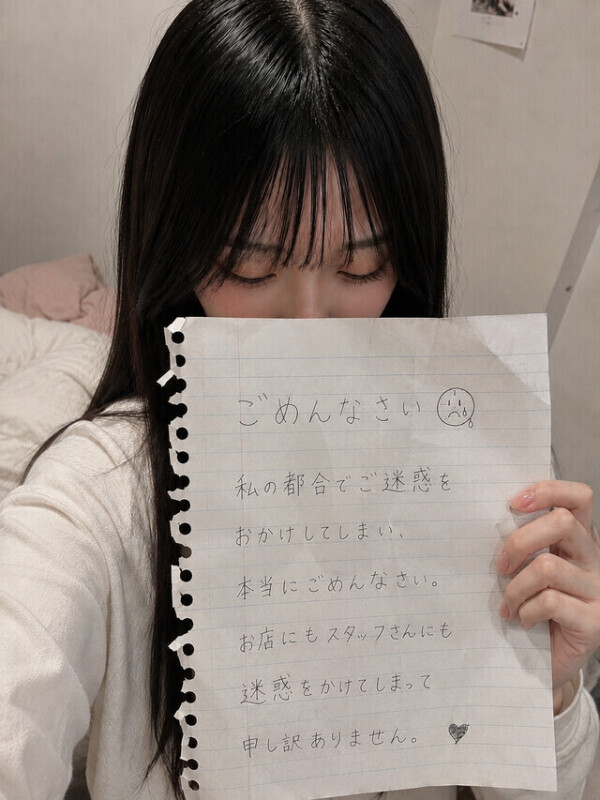 ごめんなさい
私の都合でご迷惑を
おかけしてしまい、
本当にごめんなさい。
お店にもスタッフさんにも
迷惑をかけてしまって
申し訳ありません。